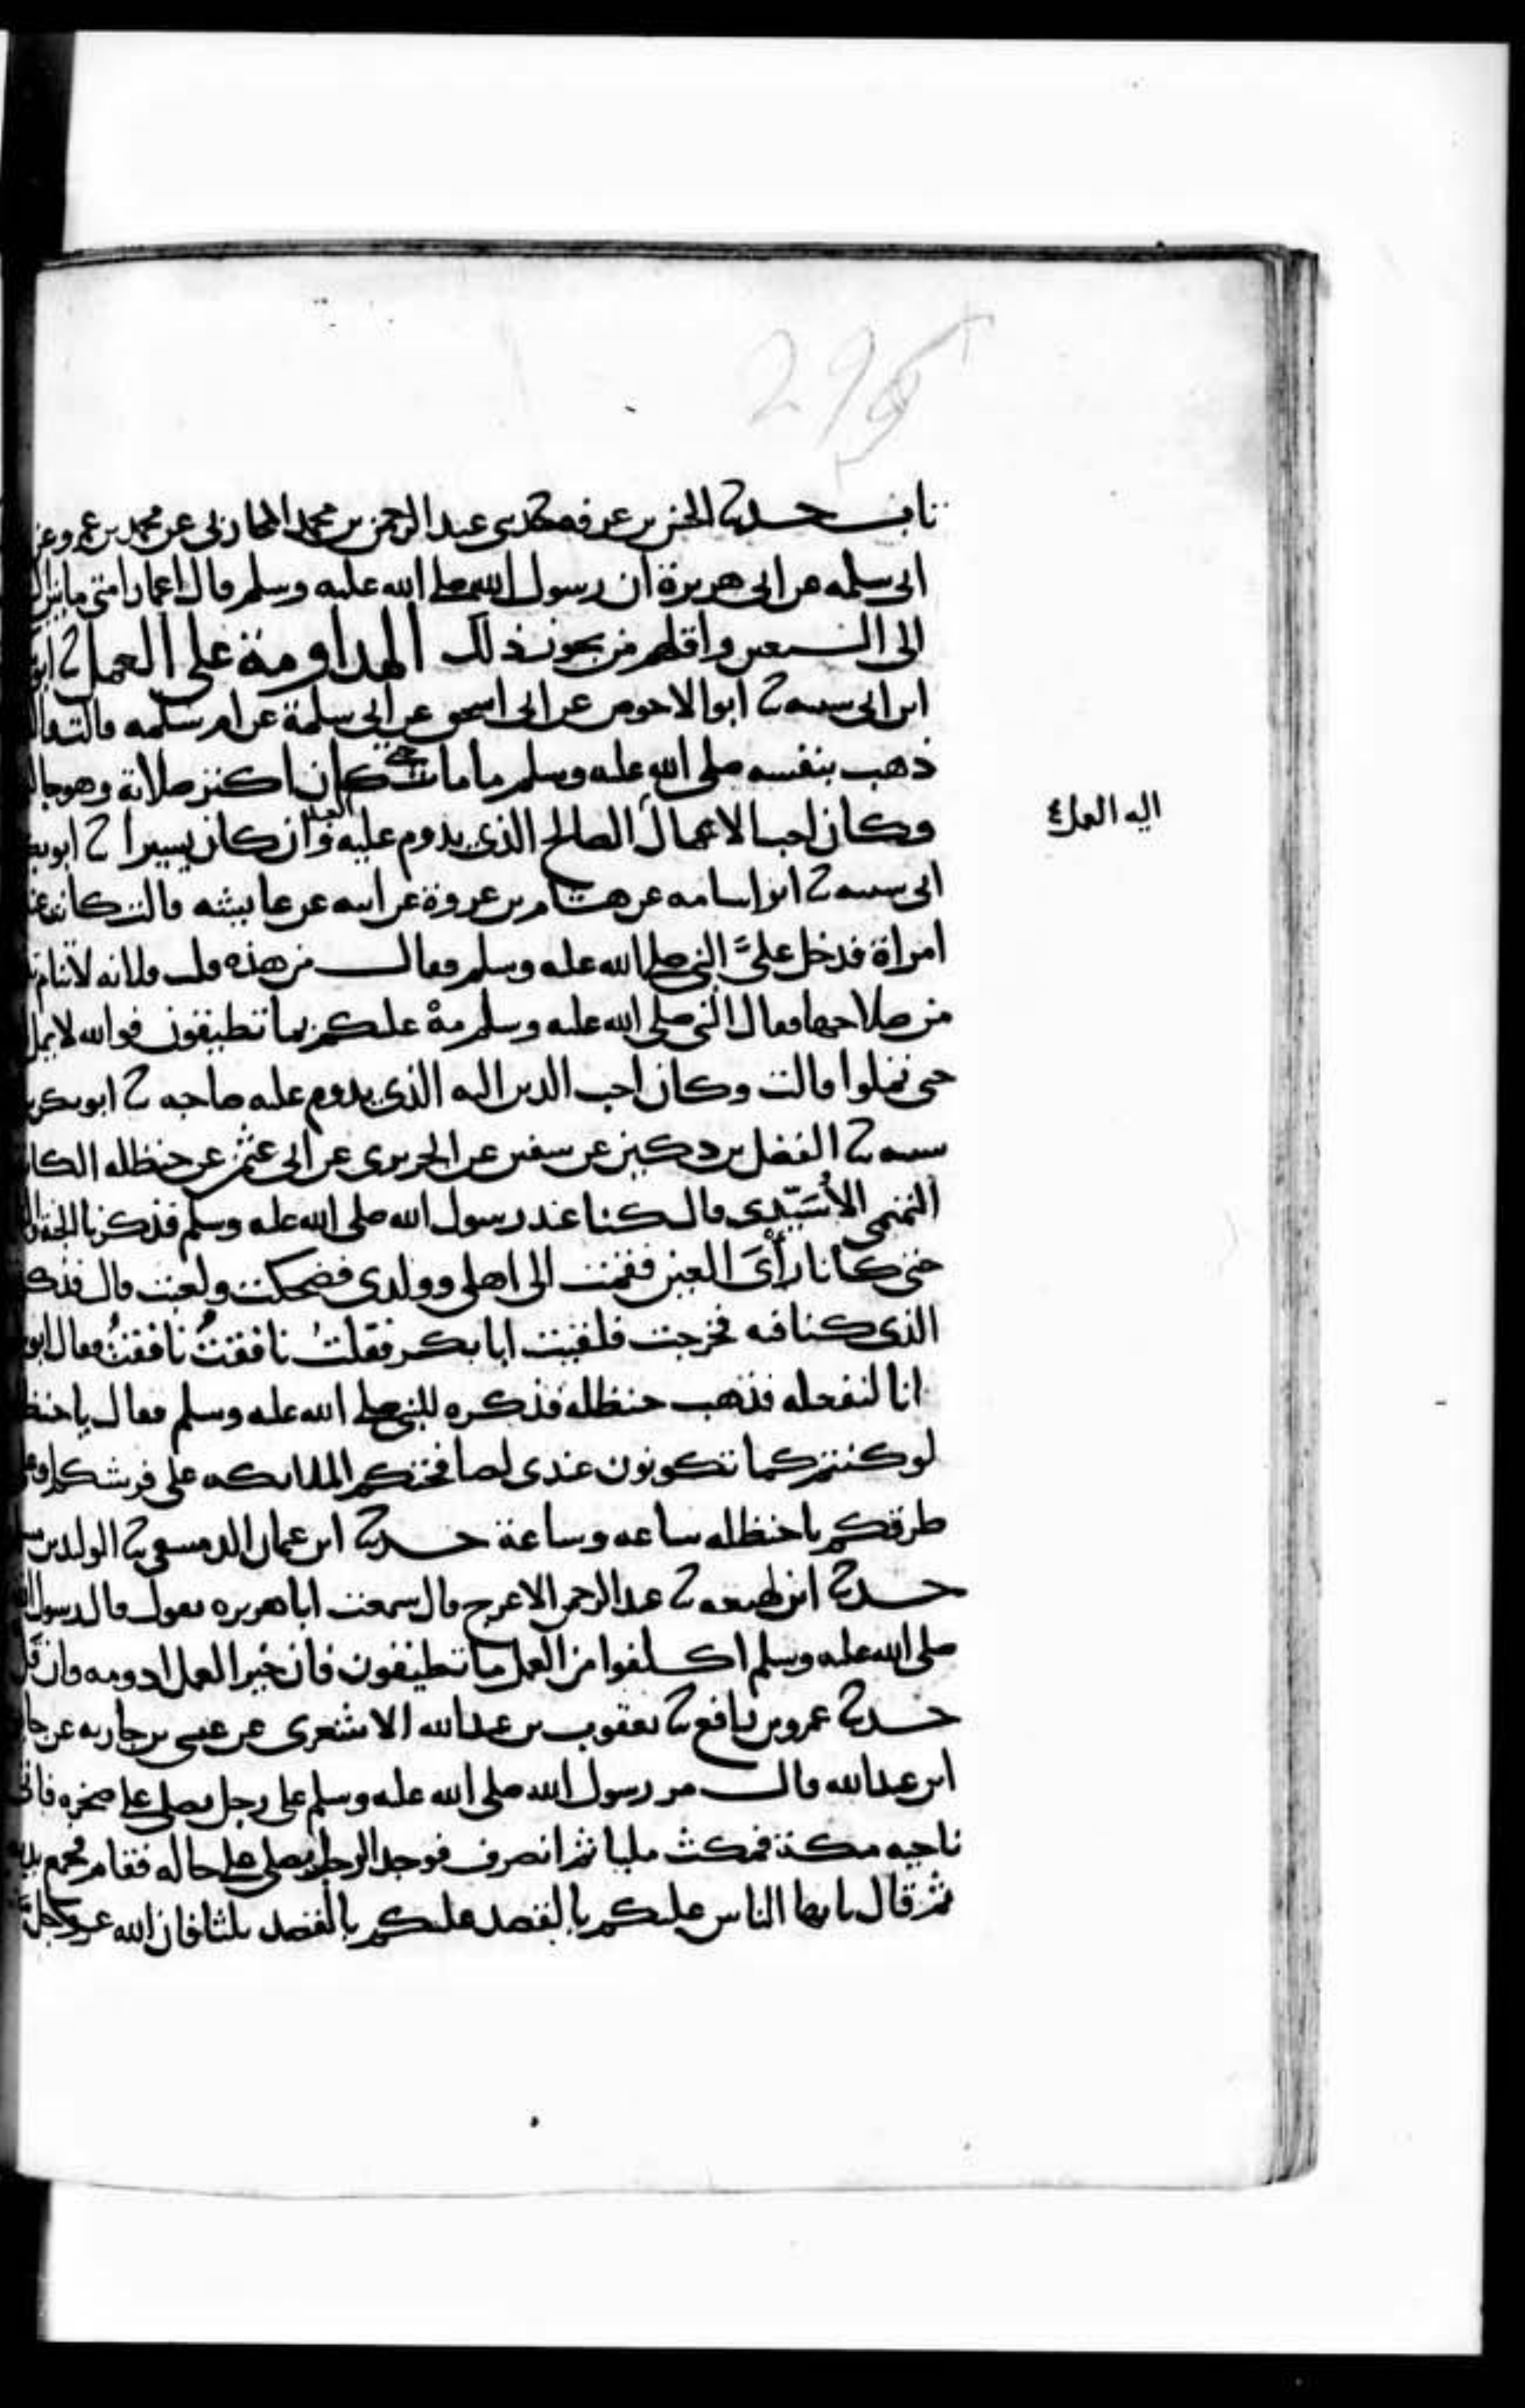 295
تاب حدثنا الحسن بن عرفه حدثني عبد الرحمن بن محمد المحاربي عن محمد بن عمرو عن
ابي سلمه عن ابي هريرة ان رسول الله صلى الله عليه وسلم قال اعمار امتي ما بين
الى السبعين واقلهم من يجوز ذلك المداومة على العمل ثنا
ابن ابي شيبه ثنا ابو الاحوص عن ابي اسحق عن ابي سلمة عن ام سلمه قالت
ذهب بنفسه صلى الله عليه وسلم ما مات حتى كان اكثر صلاته وهو
وكان احب الاعمال الصالح الذي يدوم عليه العبد وان كان يسيرا ثنا
اليه العمل
ابي شيبه ثنا ابو اسامه عن هشام بن عروة عن ابيه عن عايشه قالت كانت
امراة فدخل عليَّ النبي صلى الله عليه وسلم فقال من هذه قلت فلانه لا تنام
من صلاحها فقال النبي صلى الله عليه وسلم مهْ عليكم بما تطيقون فوالله لا يمل
حتى تملوا قالت وكان احب الدين اليه الذي يدوم عليه صاحبه ثنا ابو بكر
شيبه ثنا الفضل بن دكين عن سفين عن الجريري عن ابي عثمن عن حنظله
التميمي الأُسَيّدِي قال كنا عند رسول الله صلى الله عليه وسلم فذكرنا الجنة
حتى كانا رَأْيَ العين فقمت الى اهلي وولدي فضحكت ولعبت قال
الذي كنا فيه فخرجت فلقيت ابا بكر فقلتُ نافقتُ نافقتُ فقال
انا لنفعله فذهب حنظله فذكره للنبي صلى الله عليه وسلم فقال يا
لو كنتم كما تكونون عندي لصافحتكم الملايكه على فرشكم
طرقكم يا حنظله ساعه وساعة حدثنا ابن عمان الدمشقي ثنا الوليد بن
حدثنا ابن لهيعه ثنا عبد الرحمن الاعرج قال سمعت ابا هريره يقول قال رسول
صلى الله عليه وسلم اكلفوا من العمل ما تطيقون فان خير العمل ادومه وان قل
حدثنا عمرو بن رافع ثنا يعقوب بن عبد الله الاشعري عن عيسى بن جاريه عن
ابن عبد الله قال مر رسول الله صلى الله عليه وسلم على رجل يصلي على صخره
ناحيه مكة فمكث مليا ثم انصرف فوجد الرجل يصلي على حاله فقام فجمع يديه
ثم قال يايها الناس عليكم بالقصد عليكم بالقصد ثلثا فان الله عز وجل